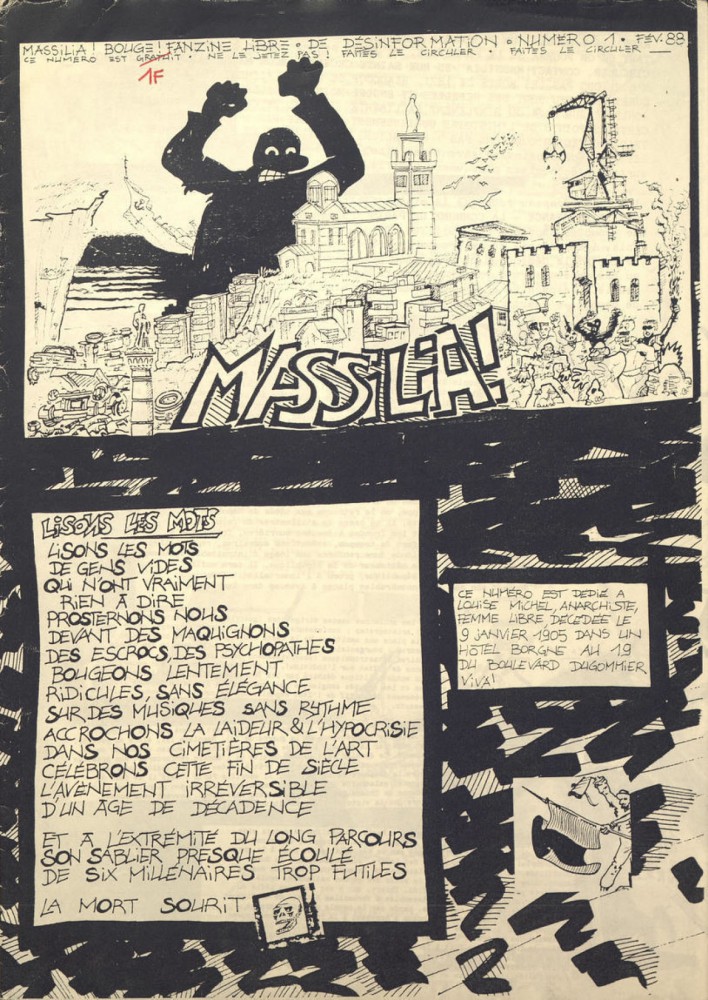 MASSILIA! BOUGE! FANZINE LIBRE • DE DÉSINFORMATION • NUMÉRO 1 • FÉV. 88
CE NUMÉRO EST GRATUIT • NE LE JETEZ PAS ! FAITES LE CIRCULER • FAITES LE CIRCULER
1F
MASSILIA!
LISONS LES MOTS
LISONS LES MOTS
DE GENS VIDES
QUI N'ONT VRAIMENT
RIEN A DIRE
PROSTERNONS NOUS
DEVANT DES MAQUIGNONS
DES ESCROCS, DES PSYCHOPATHES
BOUGEONS LENTEMENT
RIDICULES, SANS ÉLÉGANCE
SUR DES MUSIQUES SANS RYTHME
ACCROCHONS LA LAIDEUR & L'HYPOCRISIE
DANS NOS CIMETIÈRES DE L'ART
CÉLÉBRONS CETTE FIN DE SIÈCLE
L'AVÈNEMENT IRRÉVERSIBLE
D'UN AGE DE DÉCADENCE
ET A L'EXTRÉMITÉ DU LONG PARCOURS
SON SABLIER PRESQUE ÉCOULÉ
DE SIX MILLÉNAIRES TROP FUTILES
LA MORT SOURIT
CE NUMÉRO EST DEDIÉ A
LOUISE MICHEL, ANARCHISTE,
FEMME LIBRE, DECEDEE LE
9 JANVIER 1905 DANS UN
HÔTEL BORGNE AU 19
DU BOULEVARD DUGOMMIER
VIVA!